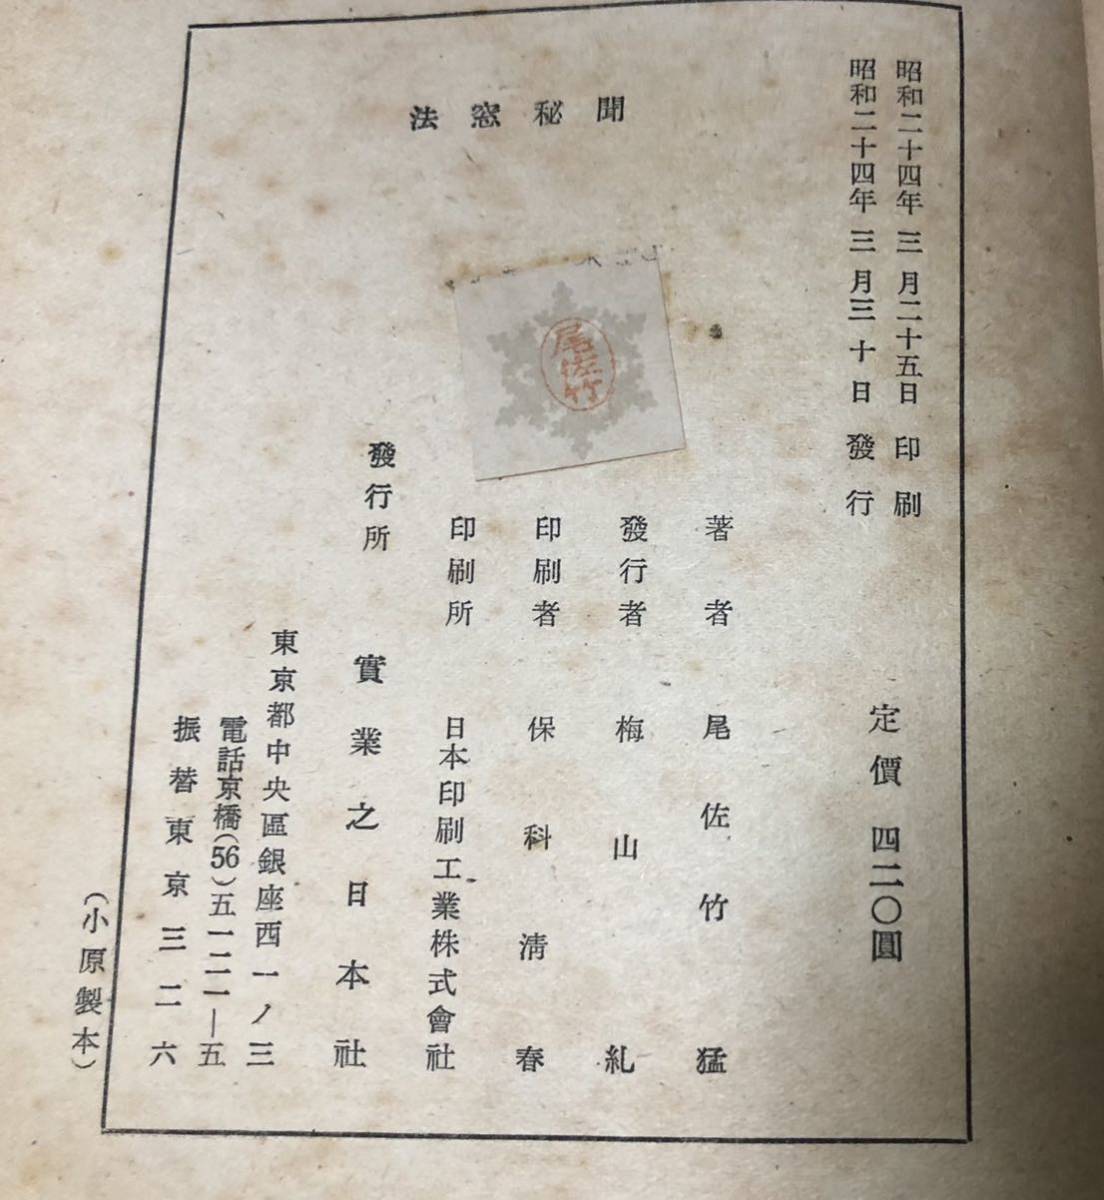 昭和二十四年三月二十五日印刷
昭和二十四年三月三十日發行
定價 四二〇圓
法窓秘聞
尾佐竹
著者 尾佐竹猛
發行者 梅山糺
印刷者 保科淸春
印刷所 日本印刷工業株式會社
發行所 實業之日本社
東京都中央區銀座西一ノ三
電話京橋(56)五一二一―五
振替東京三二六
(小原製本)